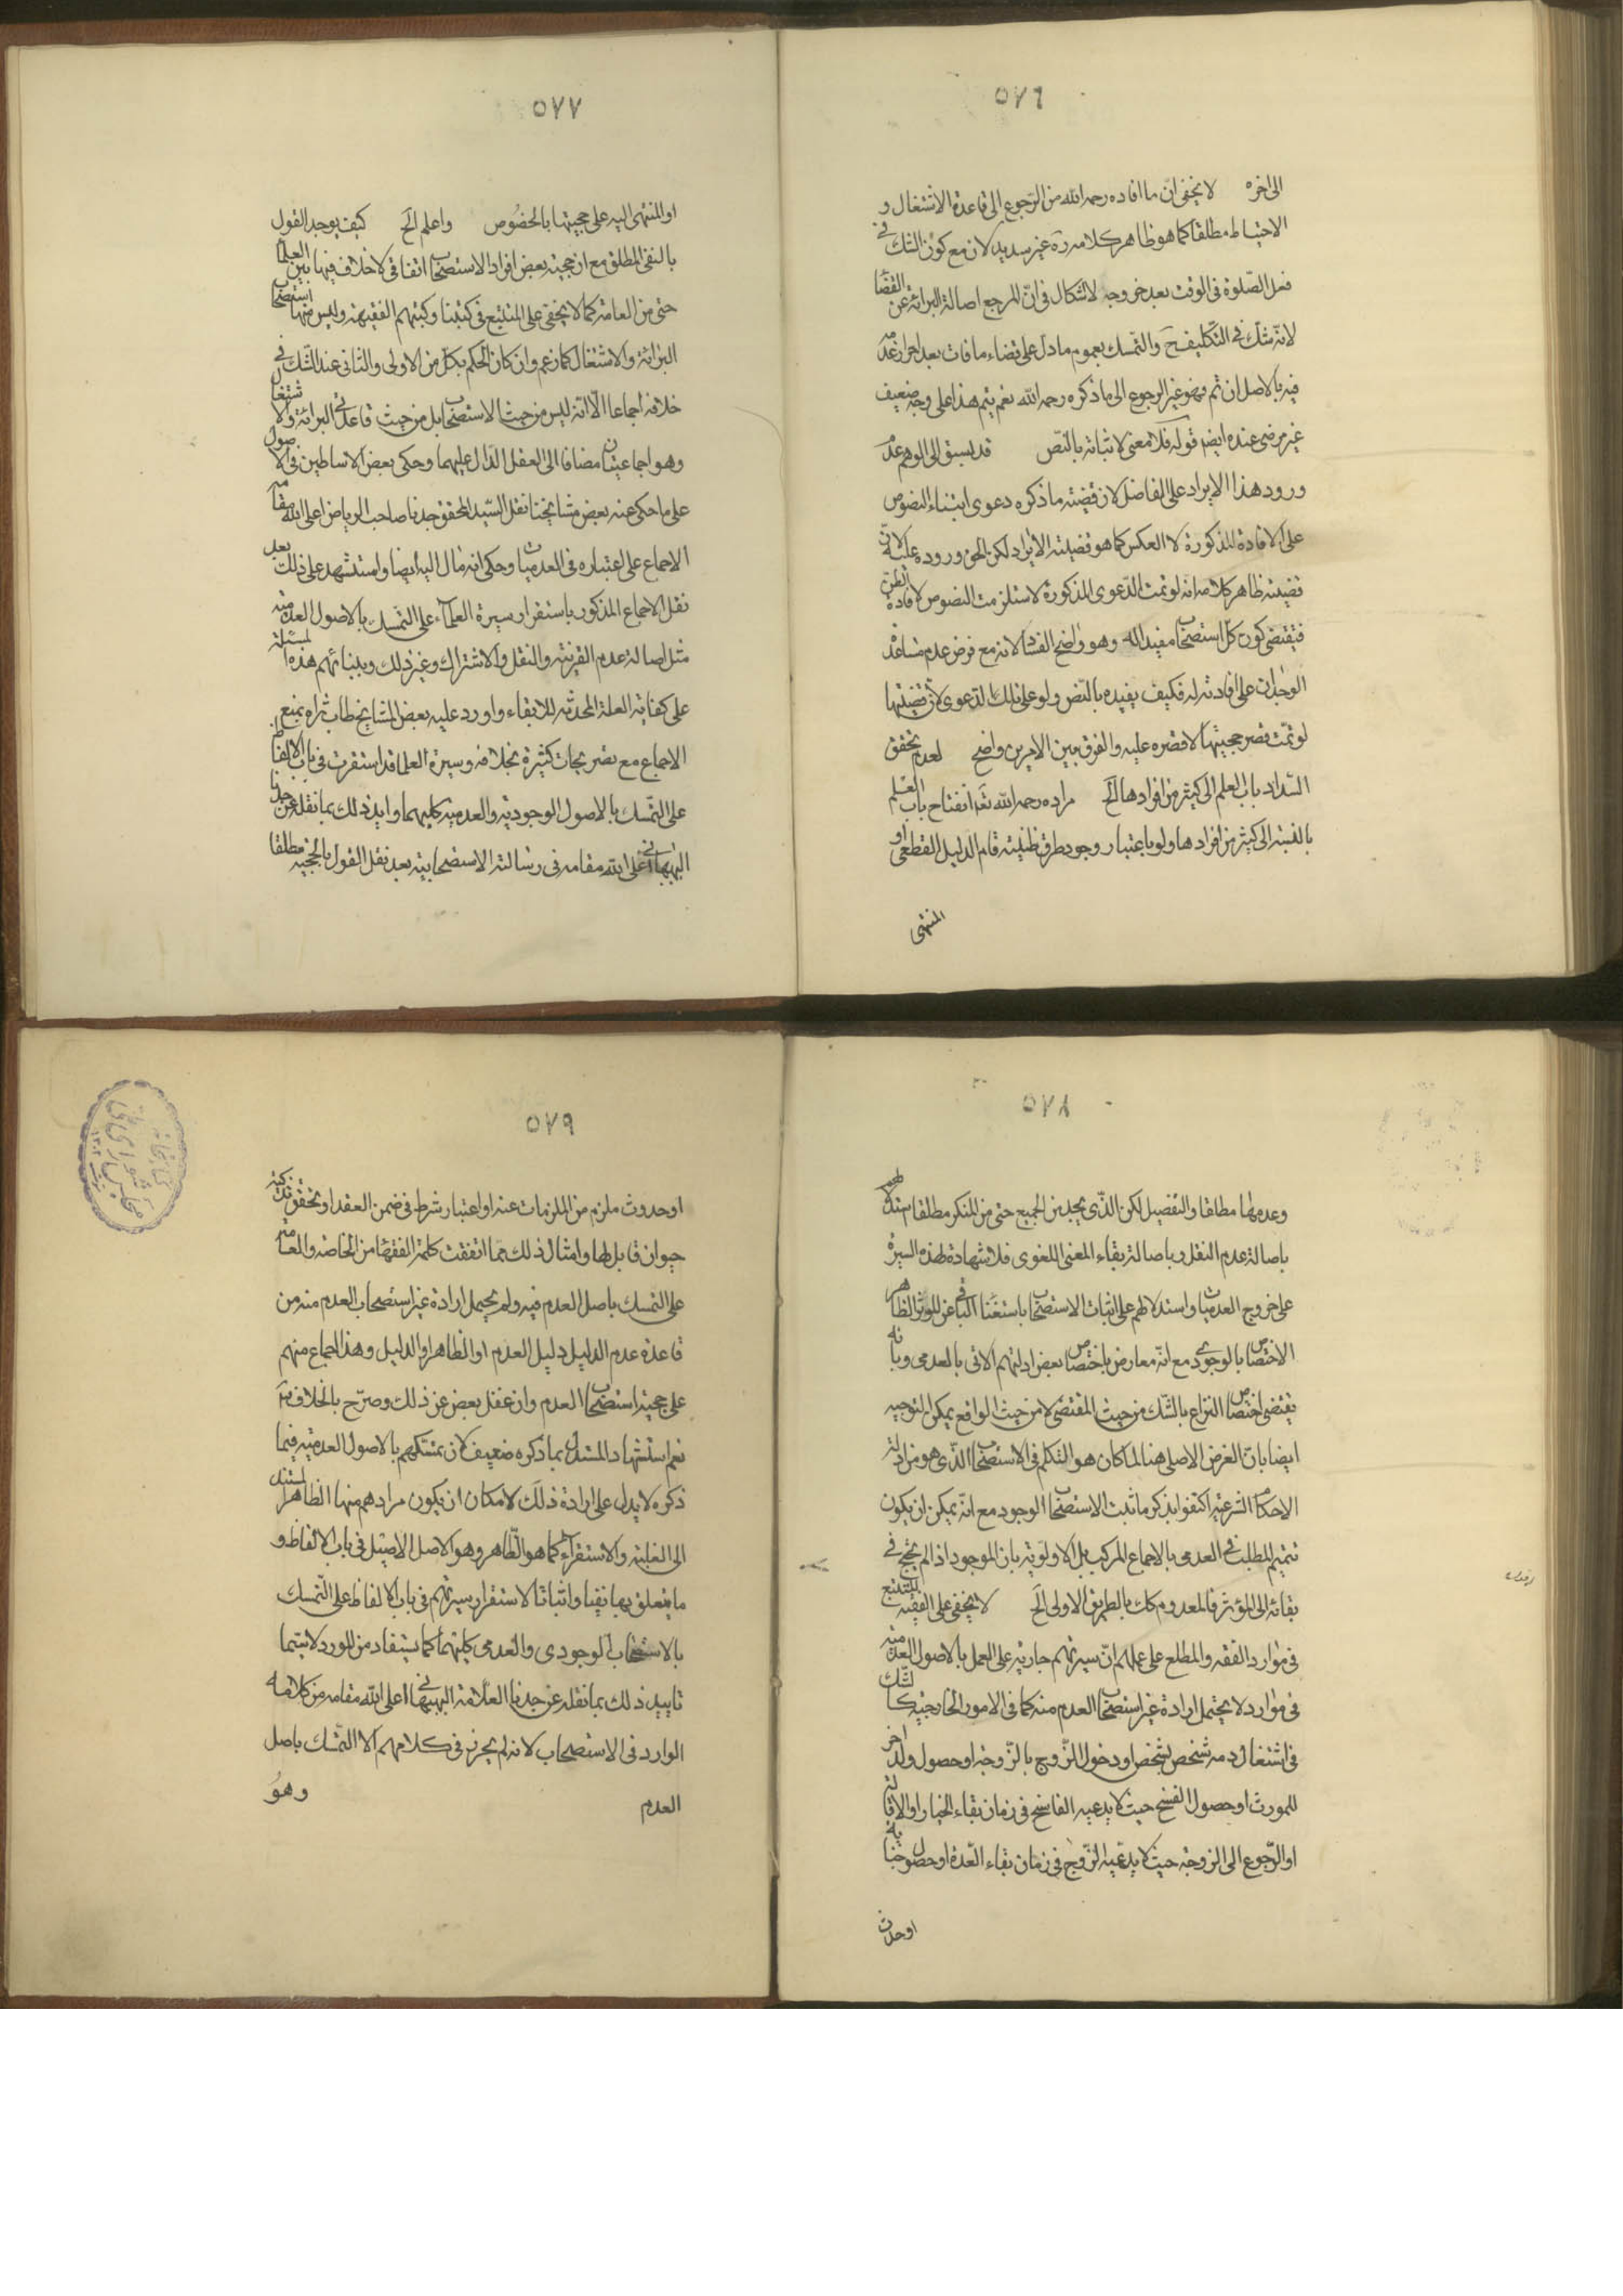 ٥٧٦
الى اخره لا يخفى ان ما افاده رحمه الله من الرجوع الى قاعدة الاشتغال و
الاحتياط مطلقا كما هو ظاهر كلامه ره غير سديد لان مع كون الشك في
فعل الصلوة فى الوقت بعد خروجه لا اشكال فى ان المرجع اصالة البرائة عن القضا
لانه شك فى التكليف ح والتمسك بعموم ما دل على قضاء ما فات بعد احراز عدمه
فيه بالاصل ان تم فهو غير الرجوع الى ما ذكره رحمه الله نعم يتم هذا على وجه ضعيف
غير مرضى عنده ايضا قوله فلا معنى لاثباته بالنص قد يسبق الى الوهم عدم
ورود هذا الايراد على الفاضل لان قضيته ما ذكره دعوى ابتناء النصوص
على الافادة المذكورة لا العكس كما هو قضيته الايراد لكن الحق وروده عليه لان
قضيته ظاهر كلامه انه لو تمت الدعوى المذكورة لاستلزمت النصوص لافادة الظن
فيقتضى كون كل استصحاب مفيدا له وهو واضح الفساد لانه مع فرض عدم مساعدة
الوجدان على افادته له فكيف يفيده بالنص ولو على تلك الدعوى لان قضيتها
لو تمت قصر حجيتها لا قصره عليه والفرق بين الامرين واضح لعدم تحقق
انسداد باب العلم الى كثير من افرادها الخ مراده رحمه الله تعه انفتاح باب العلم
بالنسبة الى كثير من افرادها ولو باعتبار وجود طرق ظنيته قام الدليل القطعى او
المنتهى
٥٧٧
او المنتهى اليه على حجيتها بالخصوص واعلم الخ كيف يوجد القول
بالنفى المطلق مع ان حجية بعض افراد الاستصحاب اتفاقى لا خلاف فيها بين العلما
حتى من العامة كما لا يخفى على المتتبع فى كتبنا وكتبهم الفقهية وليس منها استصحاب
البرائة والاشتغال كما زعم وان كان الحكم بكل من الاولى والثانى عند الشك فى
خلافه اجماعا الا انه ليس من حيث الاستصحاب بل من حيث قاعدتى البرائة والاشتغال
وهو اجماعيتان مضافا الى العقل الدال عليهما وحكى بعض الاساطين فى الاصول
على ما حكى عنه بعض مشايخنا نقل السيد المحقق جدنا صاحب الرياض اعلى الله مقامه
الاجماع على اعتباره فى العدميات وحكى انه مال اليه ايضا واستشهد على ذلك بعد
نقل الاجماع المذكور باستقرار سيرة العلماء على التمسك بالاصول العدمية
مثل اصالة عدم القرينة والنقل والاشتراك وغير ذلك وببنائهم هذه المسئلة
على كفاية العلة المحدثة للابقاء واورد عليه بعض المشايخ طاب ثراه بمنع
الاجماع مع تصريحات كثيرة بخلافه وسيرة العلما قد استقرت فى باب الالفاظ
على التمسك بالاصول الوجودية والعدمية كليهما وايد ذلك بما نقله عن جدنا
البهبهانى اعلى الله مقامه فى رسالته الاستصحابية بعد نقل القول بالحجية مطلقا
٥٧٨
وعدمها مطلقا والتفصيل لكن الذى نجد من الجميع حتى من المنكر مطلقا استدلالهم
باصالة عدم النقل وباصالة بقاء المعنى اللغوى فلا شهادة لهذه السيرة
على خروج العدميات واستدلالهم على اثبات الاستصحاب باستغناء الباقى عن المؤثر الظاهر
الاختصاص بالوجودى مع انه معارض باختصاص بعض ادلتهم الاتى بالعدمى وبانه
يقتضى اختصاص النزاع بالشك من حيث المقتضى لا من حيث الرافع يمكن التوجيه
ايضا بان الغرض الاصلى هنا لما كان هو التكلم فى الاستصحاب الذى هو من ادلة
الاحكام الشرعية اكتفوا بذكر ما ثبت الاستصحاب الوجود مع انه يمكن ان يكون
تتميم المطلب فى العدمى بالاجماع المركب بل الاولوية بان الموجود اذا لم يحتج فى
بقائه الى المؤثر فالمعدوم كك بالطريق الاولى الخ لا يخفى على الفقيه المتتبع
فى موارد الفقه والمطلع على علمهم ان سيرتهم جارية على العمل بالاصول العدمية
فى موارد لا يحتمل ارادة غير استصحاب العدم منه كما فى الامور الخارجية كالشك
فى اشتغال ذمه شخص لشخص او دخول الزوج بالزوجة او حصول ولد اخر
للمورث او حصول الفسخ حيث لا يدعيه الفاسخ فى زمان بقاء الخيار او الاقالة
او الرجوع الى الزوجة حيث لا يدعيه الزوج فى زمان بقاء العدة او حصول جناية
او حدث
٥٧٩
او حدوث ملزم من الملزمات عنه او اعتبار شرط فى ضمن العقد او تحقق تذكية
حيوان قابل لها وامثال ذلك مما اتفقت كلمة الفقها من الخاصة والعامة
على التمسك باصل العدم فيه ولم يحتمل ارادة غير استصحاب العدم منه من
قاعدة عدم الدليل دليل العدم او الظاهر او الدليل وهذا اجماع منهم
على حجية استصحاب العدم وان غفل بعض عن ذلك وصرح بالخلاف فيه
نعم استشهاد المستدل بما ذكره ضعيف لان تمسكهم بالاصول العدمية فيما
ذكره لا يدل على ارادة ذلك لامكان ان يكون مرادهم منها الظاهر المستند
الى الغلبة والاستقراء كما هو الظاهر وهو الاصل الاصيل فى باب الالفاظ و
ما يتعلق بها نفيا واثباتا لاستقرار سيرتهم فى باب الالفاظ على التمسك
بالاستصحاب الوجودى والعدمى كليهما كما يستفاد من المورد لا سيما
تاييد ذلك بما نقله عن جدنا العلامة البهبهانى اعلى الله مقامه من كلامه
الوارد فى الاستصحاب لانه لم يحرز فى كلامهم الا التمسك باصل
العدم وهو